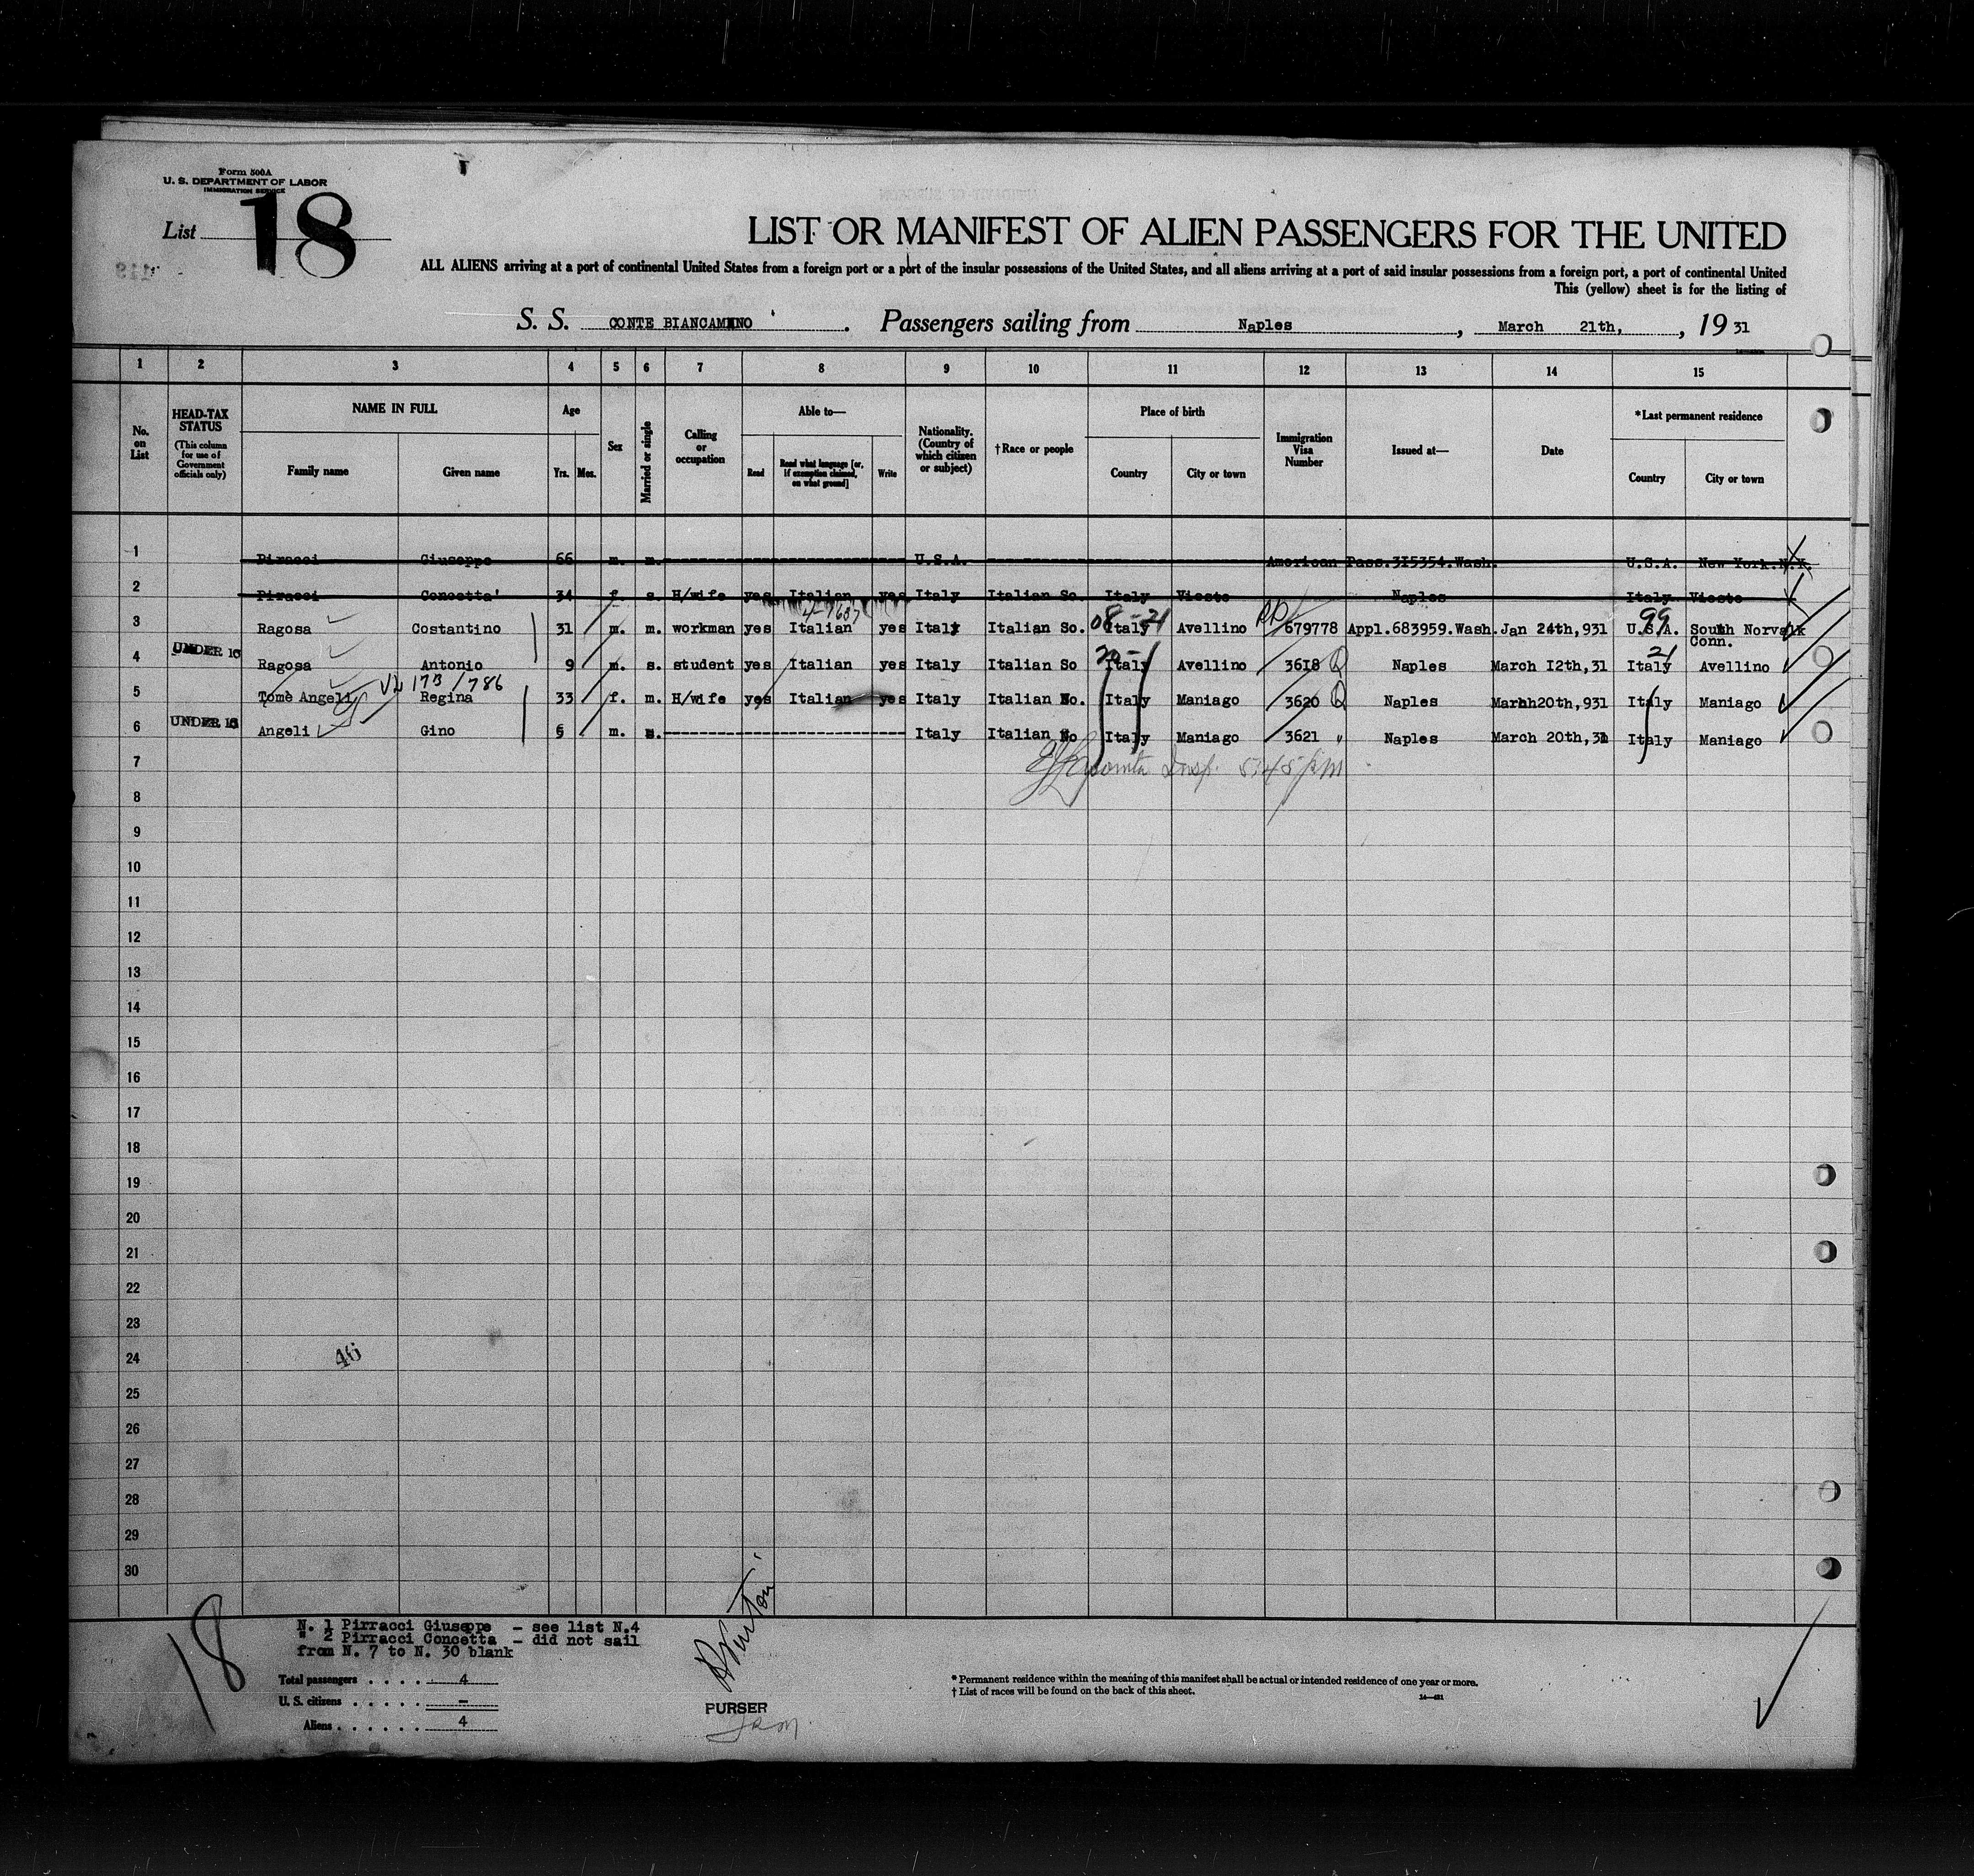 Form 500A
U. S. DEPARTMENT OF LABOR
IMMIGRATION SERVICE
List 18
LIST OR MANIFEST OF ALIEN PASSENGERS FOR THE UNITED
ALL ALIENS arriving at a port of continental United States from a foreign port or a port of the insular possessions of the United States, and all aliens arriving at a port of said insular possessions from a foreign port, a port of continental United
This (yellow) sheet is for the listing of
S. S. CONTE BIANCAMANO . Passengers sailing from Naples , March 21th, , 19 31
1 2 3 4 5 6 7 8 9 10 11 12 13 14 15
No. on List
HEAD-TAX STATUS (This column for use of Government officials only)
NAME IN FULL
Family name Given name
Age
Yrs. Mos.
Sex
Married or single
Calling or occupation
Able to—
Read Read what language [or, if exemption claimed, on what ground] Write
Nationality. (Country of which citizen or subject)
†Race or people
Place of birth
Country City or town
Immigration Visa Number
Issued at—
Date
*Last permanent residence
Country City or town
1 Piracci Giuseppe 66 m. m. U.S.A. American Pass.315354.Wash. U.S.A. New York.N.Y.
2 Piracci Concetta' 34 f. s. H/wife yes Italian yes Italy Italian So. Italy Vieste Naples Italy Vieste
08 - 21 99
3 Ragosa Costantino 31 m. m. workman yes Italian yes Italy Italian So. Italy Avellino 679778 Appl.683959.Wash. Jan 24th,931 U.S.A. South Norvalk Conn.
4 UNDER 16 Ragosa Antonio 9 m. s. student yes Italian yes Italy Italian So Italy Avellino 3618 Naples March 12th,31 Italy Avellino
173/786
5 Tomè Angeli Regina 33 f. m. H/wife yes Italian yes Italy Italian No. Italy Maniago 3620 Naples March20th,931 Italy Maniago
6 UNDER 16 Angeli Gino 6 m. s. Italy Italian No Italy Maniago 3621 " Naples March 20th,31 Italy Maniago
7 Insp. 5:45 pm
8
9
10
11
12
13
14
15
16
17
18
19
20
21
22
23
24 46
25
26
27
28
29
30
18
N. 1 Pirracci Giuseppe - see list N.4
" 2 Pirracci Concetta - did not sail
from N. 7 to N. 30 blank
Total passengers . . . . 4
U. S. citizens . . . . . –
Aliens . . . . . . 4
PURSER
* Permanent residence within the meaning of this manifest shall be actual or intended residence of one year or more.
† List of races will be found on the back of this sheet.
14—421